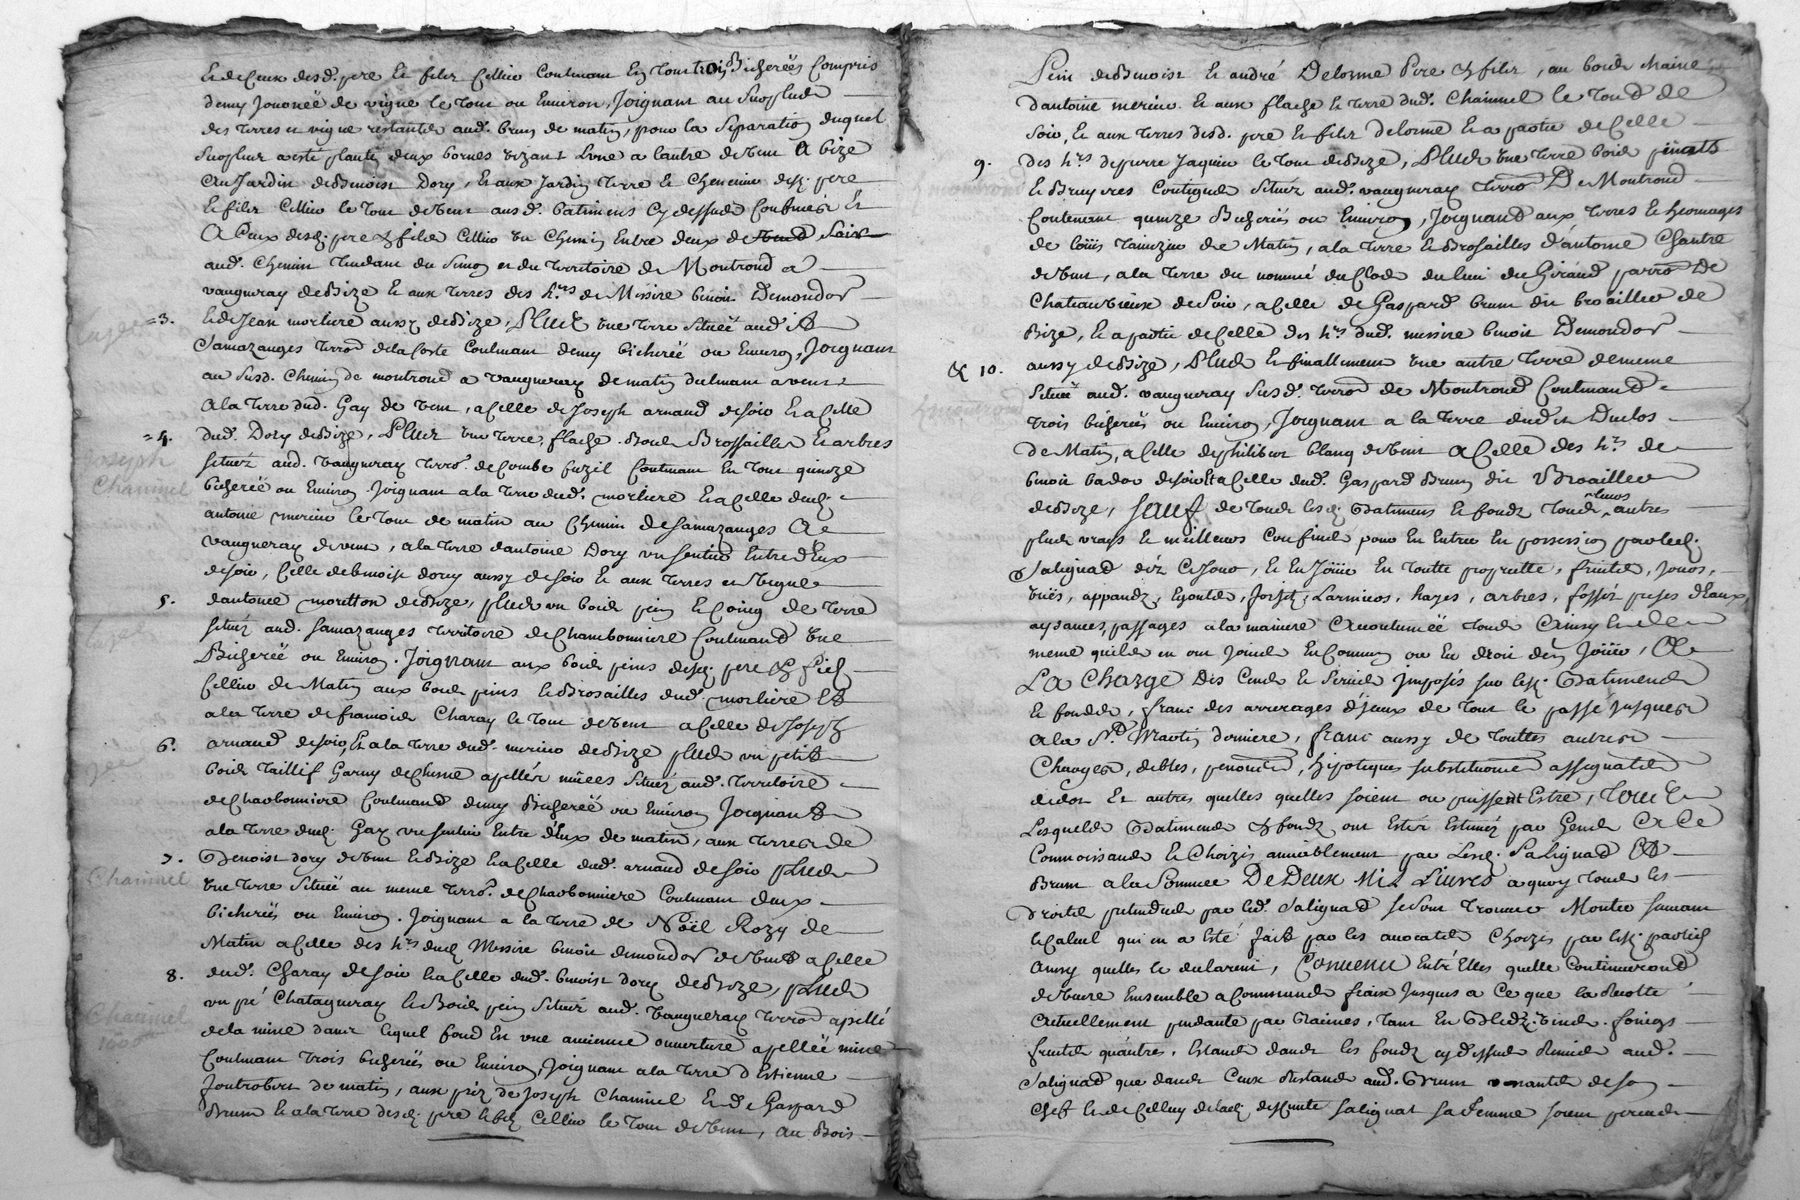 et de ceux desd. pere et filz Cellier Contenant En tout trois Bicherées Compris
demy Journée de vigne le tout ou Environ, Joignant au Surplus
des terres et vigne restantes aud. brun de matin, pour la Separation duquel
Surplus a esté planté deux bornes vizant L'vne a l'autre de vent a bize
au Jardin de Benoist Dory, et aux Jardin terre et Cheneviere desd. pere
et filz Cellier le tout de vent aux d. batimens Cy dessus Confinés et
a Ceux desd. pere et filz Cellier un Chemin Entre deux de Soir
aud. Chemin tendant du et du territoire de Montrond a
vaugneray de Bize et aux terres des h.rs de Messire benoit Demondor
=3. et de Jean morliere aussy de Bize, Plus vne terre Située aud.
Samazanges terr.d de la Coste Contenant demy bicherée ou Environ, Joignant
au Susd. Chemin de montrond a Vaugneray de matin
a la terre dud. Gay de vent, a Celle de Joseph arnaud de soir et a Celle
=4. dud. Dory de Bize, Plus vne terre, flache, Bois Brossailles et arbres
situés aud. Vaugneray terro. de Combe fuzil Contenant En tout quinze
bicherée ou Environ Joignant a la terre dud. morliere et a Celle dud.
antoine merieu le tout de matin au Chemin de Samazanges a
Vaugneray de vent, a la terre d'antoine Dory vn sentier Entre d'Eux
de soir, Celle de benoist dory aussy de soir et aux terres et vigne
5. d'antoine moretton de Bize, plus vn bois pin et Coing de terre
situé aud. Samazanges territoire de Chambonniere Contenand vne
Bicherée ou Environ. Joignant aux bois pins desd. pere et fils
Cellier de Matin aux bois pins et Brosailles dud. morliere et
a la terre de francois Charay le tout de vent a Celle de Joseph
6. arnaud de soir, Et a la terre dud. merieu de Bize plus vn petit
bois taillif Garny de Chesne apellés Situés aud. territoire
de Charbonniere Contenand demy Bicherée ou Environ Joignant
a la terre dud. Gay vn sentier Entre d'Eux de matin, aux terres de
7. Benoist dory de vent et Bize et a Celle dud. arnaud de soir plus
vne terre Située au meme terro. de Charbonniere Contenant deux
bicherées ou Environ. Joignant a la terre de Noël Rozy de
Matin a Celle des h.rs dud. Messire benoit demondor de vent a Celle
8. dud. Charay de soir et a Celle dud. benoist dory de Bize, plus
vn pré Chatagneray et Bois pin Situé aud. Vaugneray terrod apellé
de la mine dans lequel fond Est vne ancienne ouverture apellée mine
Contenant trois bicherées ou Environ, Joignant a la terre d'Estienne
Joutrobert de matin, aux prez de Joseph Chaninel et de Gaspard
Brun et a la terre desd. pere et filz Cellier le tout de vent, au Bois
Joseph
Chaninel
Chaninel
Chaninel
Pin de Benoist et andré Delorme Pere et filz, au bois Naine
d'antoine merieu et aux flache et terre dud. Chaninel le tout de
soir, et aux terres desd. pere et filz delorme et a partie de Celle
9. des h.rs de pierre Jaquier le tout de Bize, Plus vne terre bois pinets
et Bruyeres Contigues Situés aud. vaugneray terro. De Montrond
Contenant quinze Bicherées ou Environ, Joignand aux terres et hermages
de loüis de Matin, a la terre et Brosailles d'antoine Chantre
de vent, a la terre du nommé duclos du lieu du Girand parro. De
Chateauvieux de Soir, a Celle de Gaspard brun dit broaillier de
Bize, et a partie de Celle des h.rs dud. messire benoit Demondor
& 10. aussy de Bize, Plus et finallement vne autre terre de meme
Située aud. vaugneray Susd. terro. de Montrond Contenand
trois bicherées ou Environ, Joignant a la terre dudit Duclos
de Matin, a Celle de philibert blanq de vent a Celle des h.rs de
benoit bador de soir Et a Celle dud. Gaspard Brun dit Broaillier
de Bize, Sauf de tous lesd. Batimens et fonds tous leurs autres
plus vrays et meilleurs Confins pour En Entrer En possession par led.
Salignad déz Cejour, et En Joüir En toutte proprieté, fruits, Jours,
vües, appands, Egouts, forjets, Larmiers, hayes, arbres, fossés prises d'Eaux
aysances, passages a la maniere accoutumée tous Ainsy et de
meme quils en ont Jouis En Commun ou En droit d'en Joüir, a
La Charge Des Cens et Servis Imposés sur lesd. Batimens
et fonds, franc des arrerages d'jceux de tout le passé Jusques
a la St. Martin derniere, franc aussy de touttes autres
Charges, debtes, pensions, hipoteques substitutions assignats
de dot Et autres quelles quelles soient ou puissent Estre, Tous
Lesquels Batimens et fonds ont Estés Estimés par Gens a Ce
Connoissants et Choizis amiablement par Lesd. Salignad Et
Brun a la Somme De Deux Mil Livres a quoy tous les
droits pretendus par led. Salignad se sont trouvés Monter suivant
le Calcul qui en a Esté fait par les avocats Choizis par lesd. parties
Ainsy quelles le declarent, Convenu Entr'Elles quelle Continueront
de vivre Ensemble a Communs fraix Jusques a Ce que la Recolte
actuellement pendante par Racines, tant En Bledz, vins, foings
fruits qu'autres, Estants dans les fonds cy dessus Remis aud.
Salignad que dans Ceux Restants aud. Brun provenants de son
Chef et de Celluy de lad. deffunte Salignat sa femme soient perçus